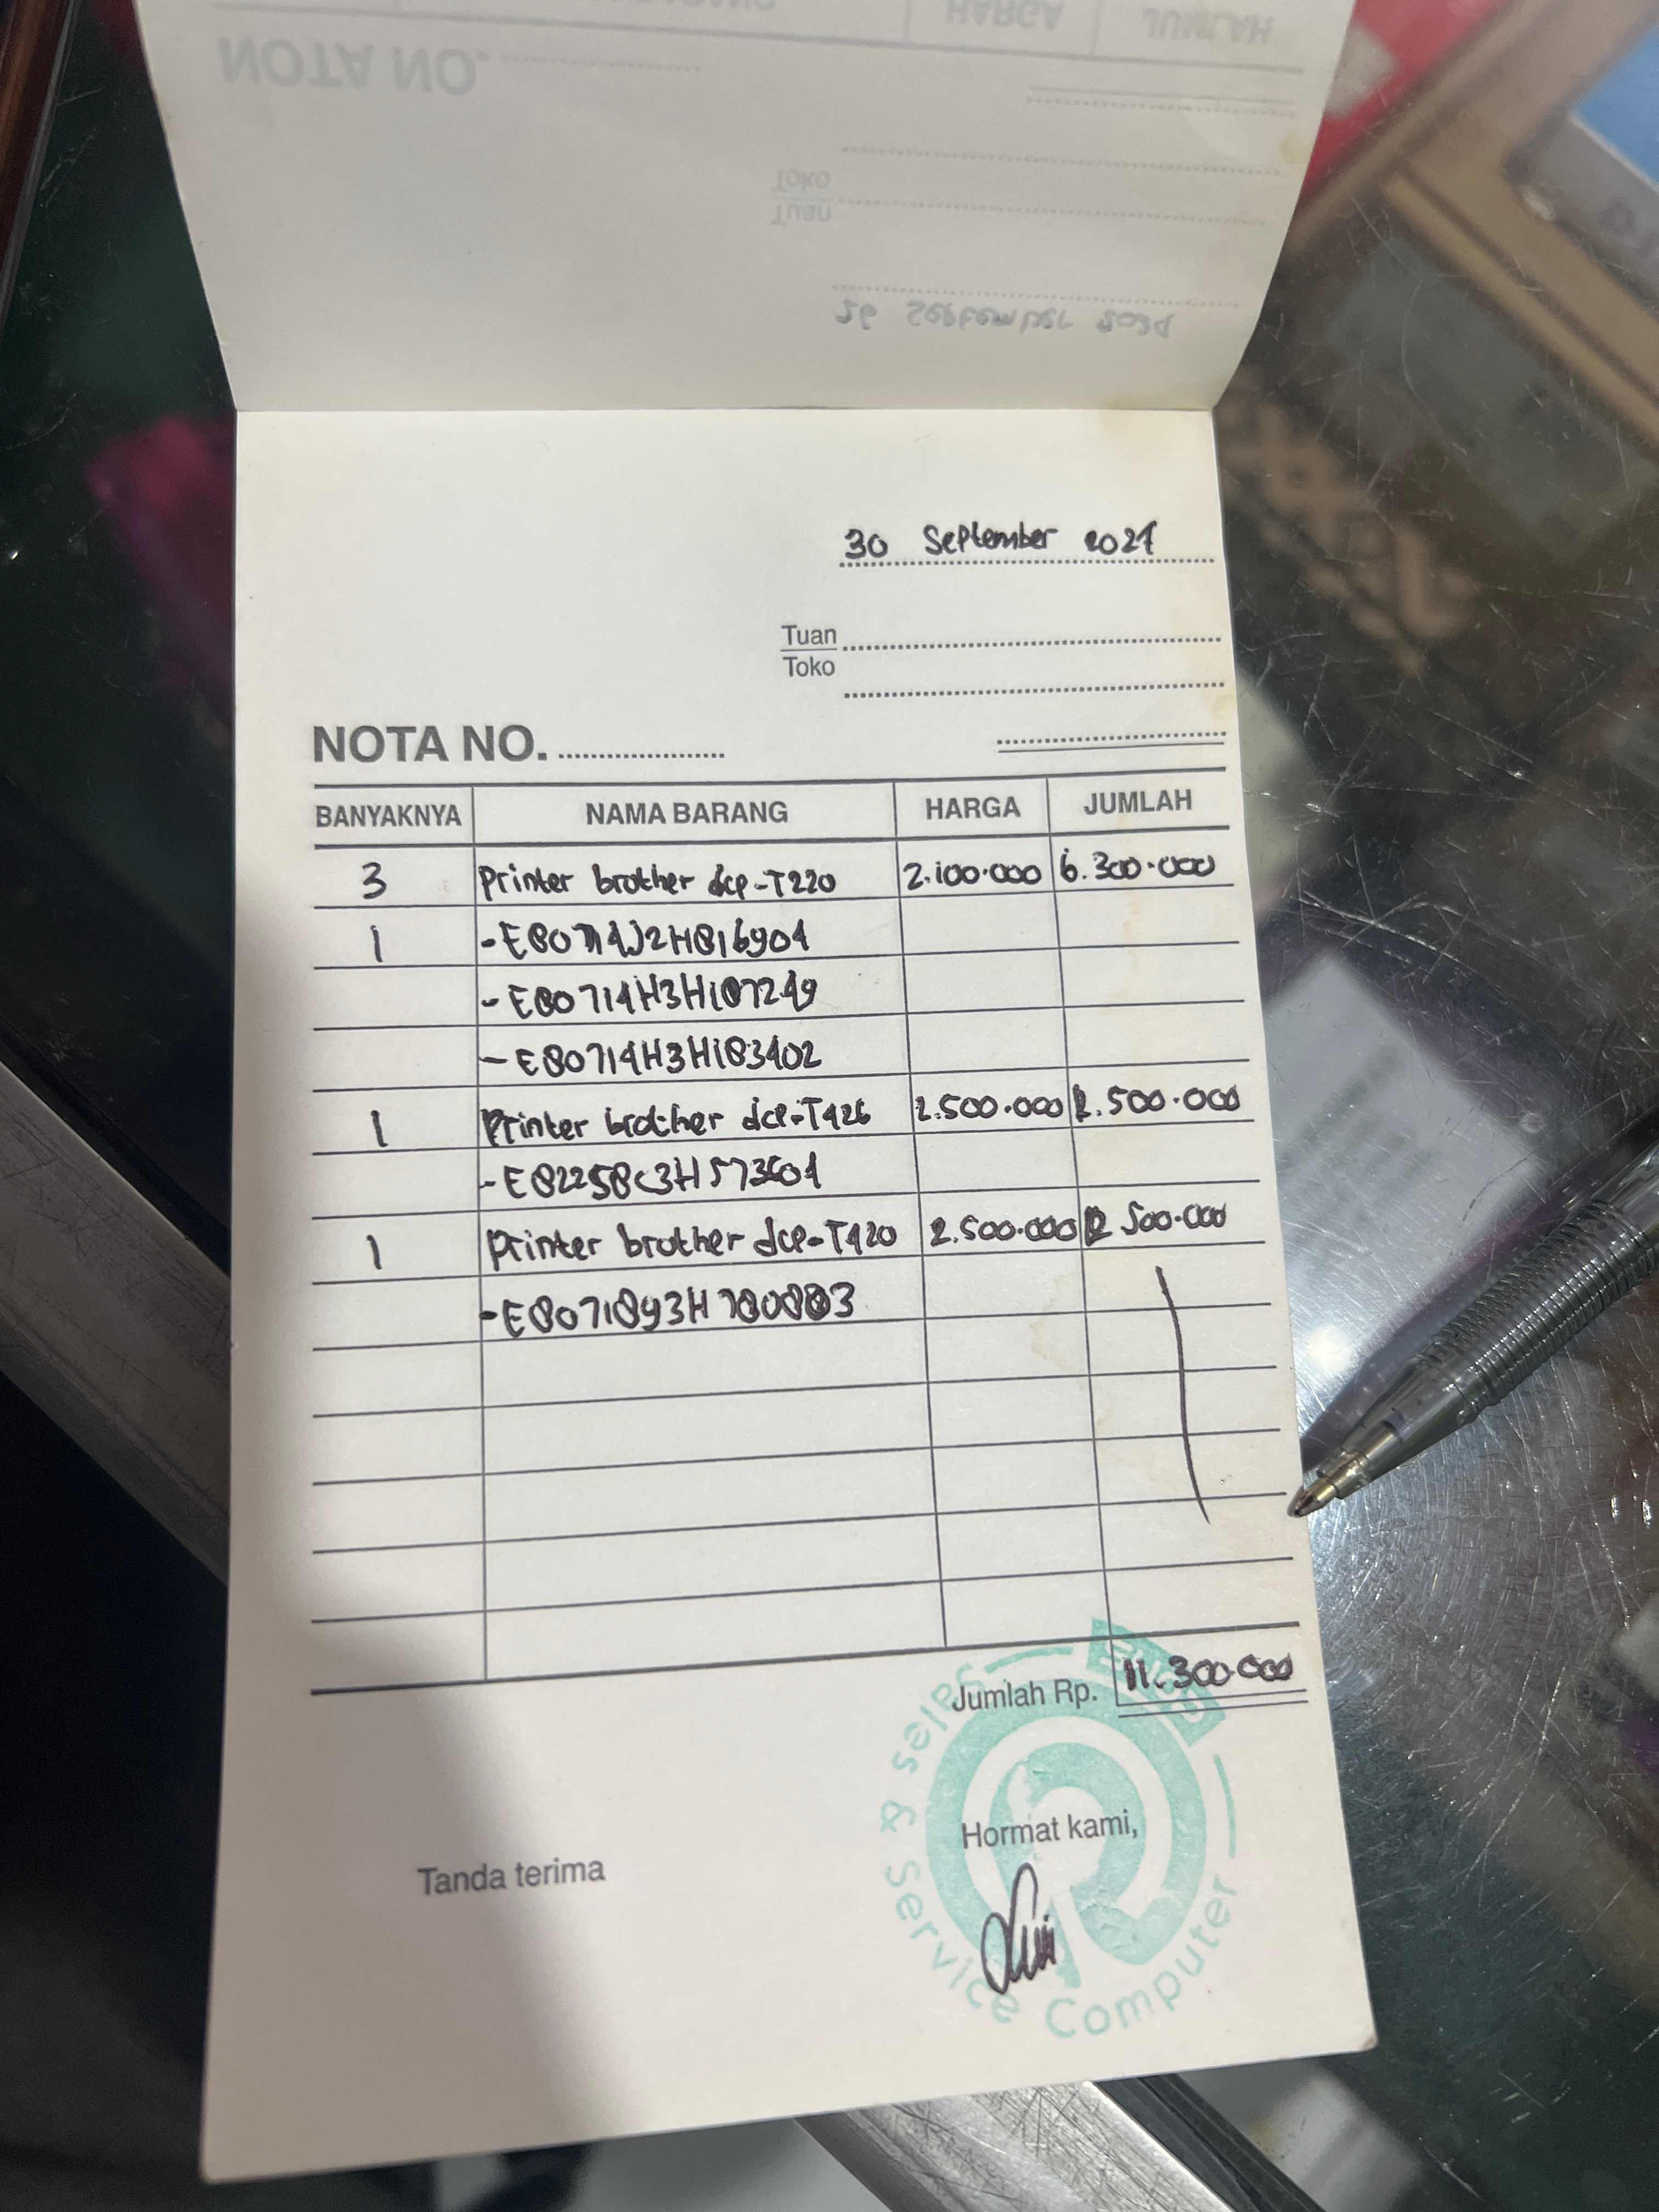 NOTA NO.
HARGA
JUMLAH
Toko
Tuan
26 September 2024
30 September 2024
Tuan
Toko
NOTA NO.
BANYAKNYA NAMA BARANG HARGA JUMLAH
3 Printer brother dcp-T220 2.100.000 6.300.000
1
- E80714H3H187249
- E80714H3H183402
1 Printer brother dcp-T426 2.500.000 2.500.000
1 Printer brother dcp-T420 2.500.000 2.500.000
Jumlah Rp. 11.300.000
Tanda terima
Hormat kami,
Service & Sales
Computer